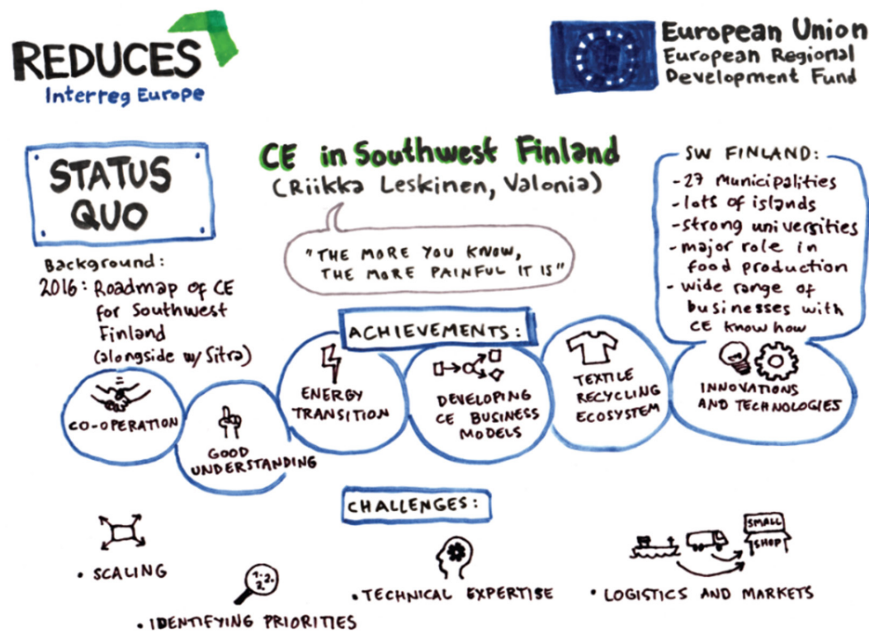 REDUCES
Interreg Europe
European Union
European Regional
Development Fund
STATUS
QUO
CE in Southwest Finland
(Riikka Leskinen, Valonia)
"THE MORE YOU KNOW,
THE MORE PAINFUL IT IS"
SW FINLAND:
- 27 municipalities
- lots of islands
- strong universities
- major role in
food production
- wide range of
businesses with
CE know how
Background:
2016: Roadmap of CE
for Southwest
Finland
(alongside w/ Sitra)
ACHIEVEMENTS:
CO-OPERATION
GOOD
UNDERSTANDING
ENERGY
TRANSITION
DEVELOPING
CE BUSINESS
MODELS
TEXTILE
RECYCLING
ECOSYSTEM
INNOVATIONS
AND TECHNOLOGIES
CHALLENGES:
• SCALING
1. 2.
2.
• IDENTIFYING PRIORITIES
• TECHNICAL EXPERTISE
SMALL
SHOP
• LOGISTICS AND MARKETS